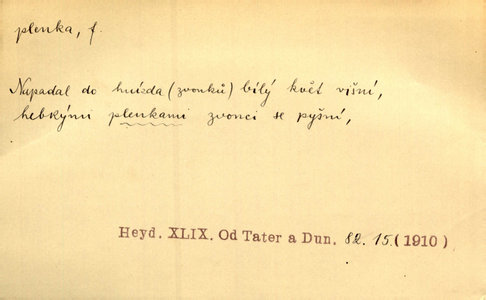 plenka, f.
Napadal do hnízda (zvonků) bílý květ višní,
hebkými plenkami zvonci se pyšní,
Heyd. XLIX. Od Tater a Dun. 82. 15. (1910)